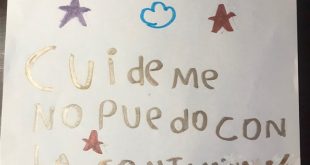 CUideme
NO PUedo CON
LA